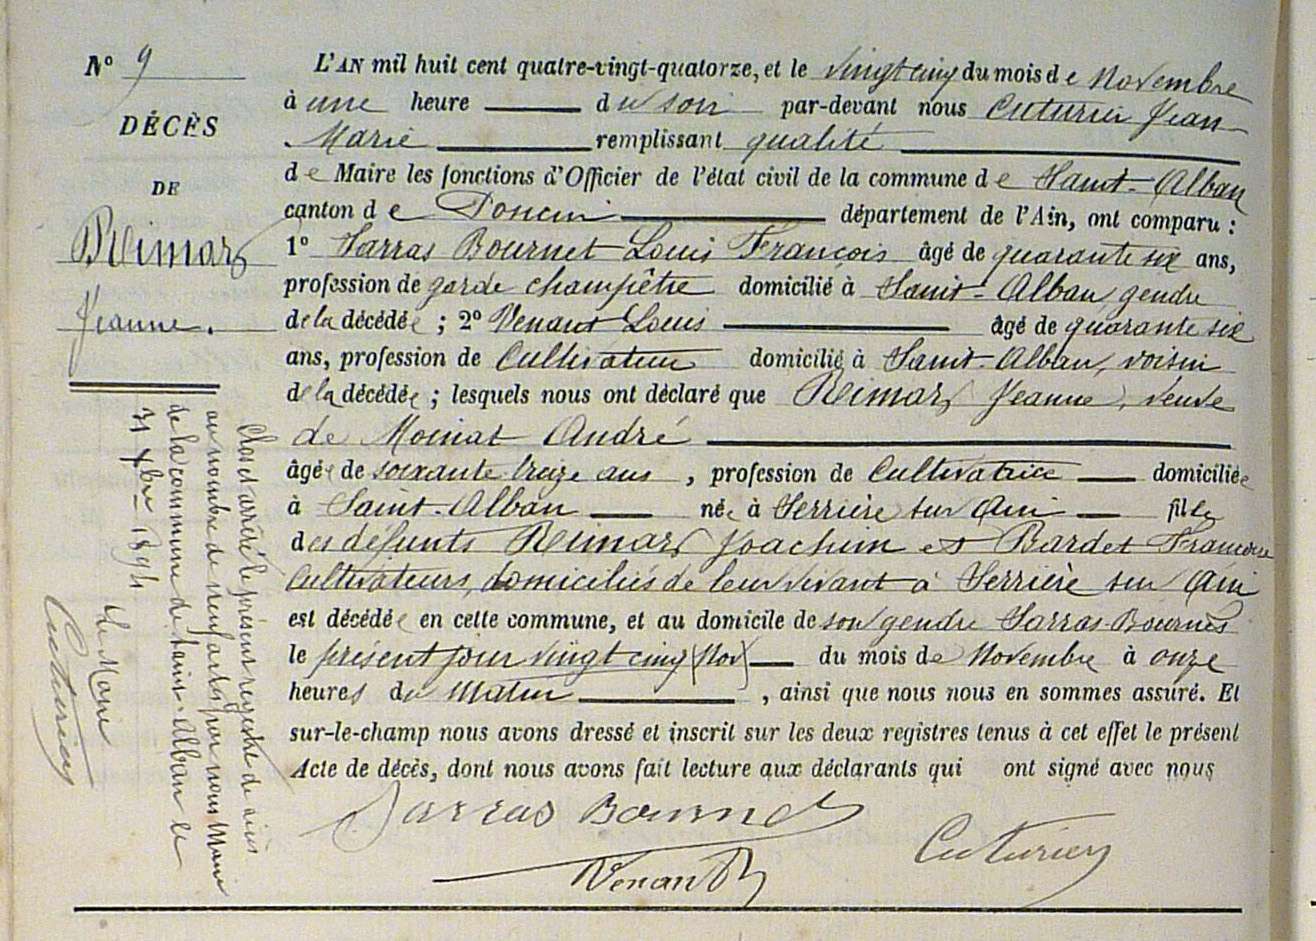 N° 9
DÉCÈS
DE
Reimarz
Jeanne.
L'AN mil huit cent quatre-vingt-quatorze, et le vingt cinq du mois de Novembre
à une heure du soir par-devant nous Cuturier Jean
Marie remplissant qualité
de Maire les fonctions d'Officier de l'état civil de la commune de Saint-Alban
canton de Poncin département de l'Ain, ont comparu :
1° Sarras Bournet Louis François âgé de quarante six ans,
profession de garde champêtre domicilié à Saint-Alban, gendre
de la décédée ; 2° Venant Louis âgé de quarante six
ans, profession de Cultivateur domicilié à Saint-Alban, voisin
de la décédée ; lesquels nous ont déclaré que Reimarz Jeanne, veuve
de Moinat André
âgée de soixante treize ans, profession de Cultivatrice domiciliée
à Saint-Alban née à Serrière sur Ain fille
des défunts Reimarz Joachim et Bardet Francoise
Cultivateurs, domiciliés de leur vivant à Serrière sur Ain
est décédée en cette commune, et au domicile de son gendre Sarras-Bournet
le présent jour vingt cinq (Nov) du mois de Novembre à onze
heures du Matin, ainsi que nous nous en sommes assuré. Et
sur-le-champ nous avons dressé et inscrit sur les deux registres tenus à cet effet le présent
Acte de décès, dont nous avons fait lecture aux déclarants qui ont signé avec nous
Sarras Bournet
Venant
Cuturier
Clos et arrêté le présent registre de décès
au nombre de neuf actes par nous Maire
de la commune de Saint-Alban le
31 Xbre 1894
Le Maire
Cuturier